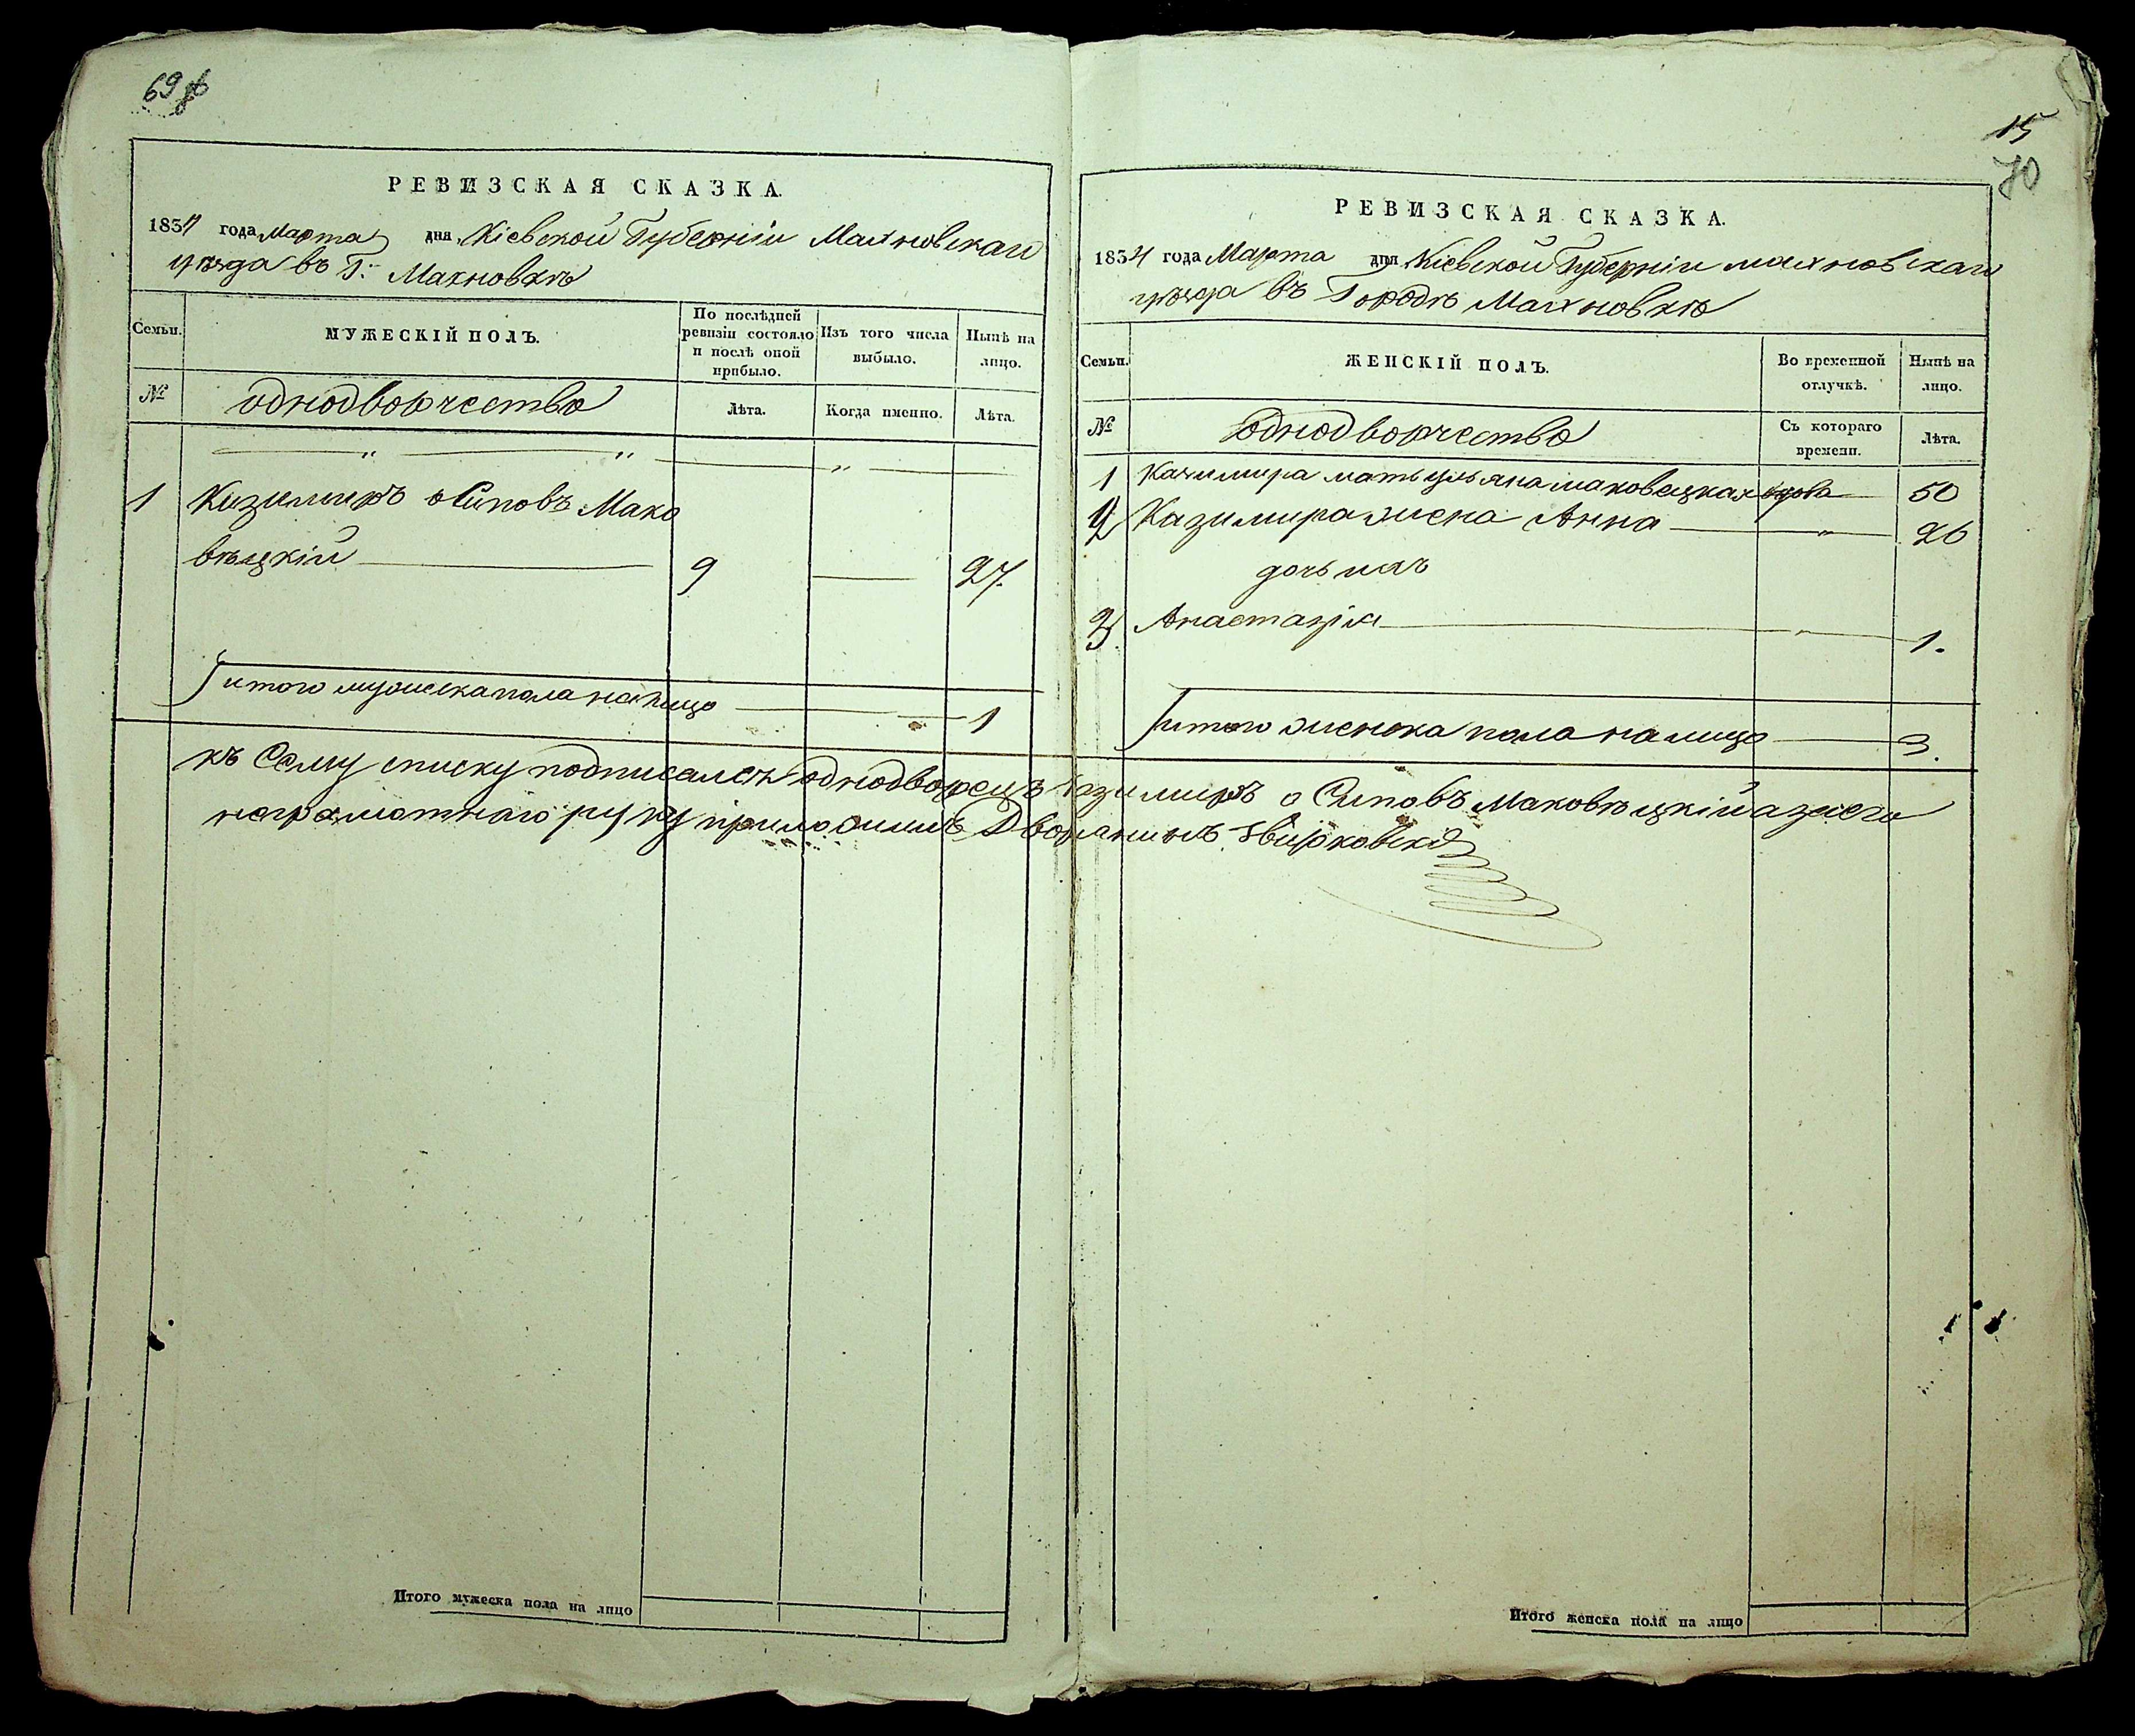 69 об
РЕВИЗСКАЯ СКАЗКА.
1834 года Марта дня Кіевской Губерніи Махновскаго
уѣзда въ Г. Махновкѣ
Семьи.
МУЖЕСКІЙ ПОЛЪ.
По послѣдней ревизіи состояло и послѣ оной прибыло.
Изъ того числа выбыло.
Нынѣ на лицо.
№
однодворчество
Лѣта.
Когда именно.
Лѣта.
1 Казимиръ осиповъ Мако
вѣцкій 9 27.
итого мужеска пола налицо 1
Итого мужеска пола на лицо
15
70
РЕВИЗСКАЯ СКАЗКА.
1834 года Марта дня Кіевской Губерніи Махновскаго
уѣзда въ Городѣ Махновкѣ
Семьи.
ЖЕНСКІЙ ПОЛЪ.
Во временной отлучкѣ.
Нынѣ на лицо.
№
однодворчество
Съ котораго времени.
Лѣта.
1 Казимира мать ульяна маковецкая вдова 50
2 Казимира жена Анна 26
дочь ихъ
3. Анастазія 1.
итого женска пола налицо 3.
къ Сему списку подписался однодворецъ казимиръ осиповъ Маковѣцкій азаего
неграмотнаго руку приложилъ Дворянинъ
Итого женска пола на лицо